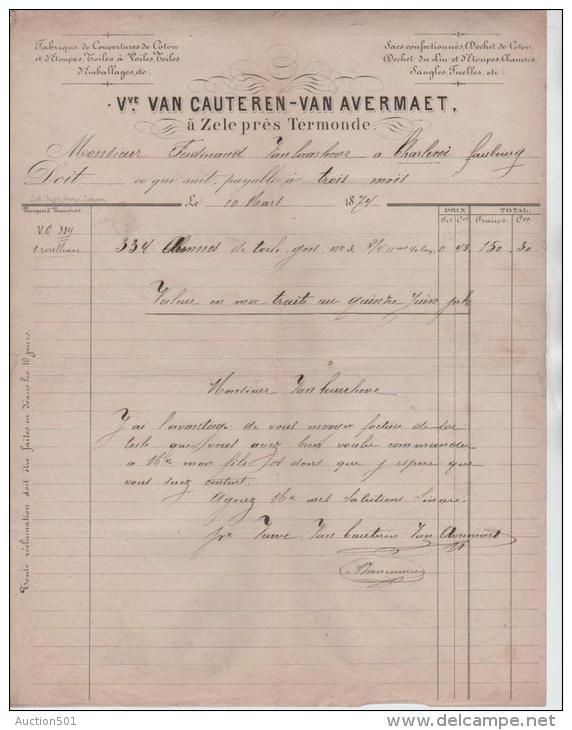 Fabrique de Couvertures de Coton
et d'Etoupes, Toiles à Voiles, Toiles
d'Emballages, etc.
Sacs confectionnés, Dechet de Coton,
Dechet du Lin et d'Etoupes, Chanvres,
Sangles, Ficelles, etc.
Vve VAN CAUTEREN-VAN AVERMAET,
à Zele près Termonde.
Monsieur Ferdinand à Charleroi faubourg
Doit ce que suit, payable à trois mois
Le 10 Mars 1874
Marques & Numéros.
PRIX TOTAL
Frs Ces Francs. Ces
V.C 334
334 Aunes de toile gris No 3. 0 45 150 30
1 rouleau
Valeur en ma traite au quinze Juin
Monsieur
J'ai l'avantage de vous envoyer facture de la
toile que vous avez bien voulu commander
a Mr mon fils et dont que j'espere que
vous serez content.
Agreez Mr mes salutions sincere.
pr Veuve Van Cauteren Van Avermaet
Toute réclamation doit être faites endéans les 10 jours.
Auction501
www.delcampe.net